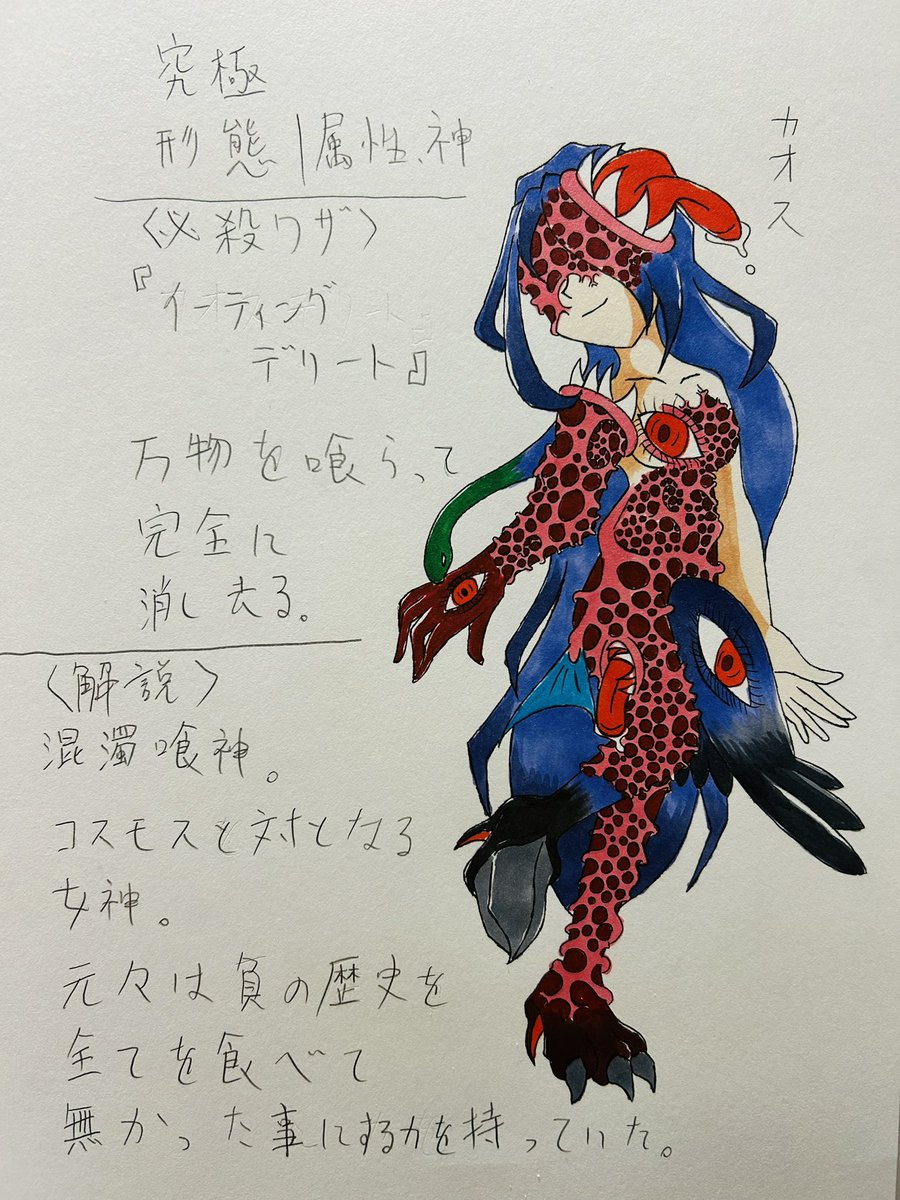 カオス
究極
形態|属性、神
〈必殺ワザ〉
『イーティング
デリート』
万物を喰らって
完全に
消し去る。
〈解説〉
混濁喰神。
コスモスと対となる
女神。
元々は負の歴史を
全てを食べて
無かった事にする力を持っていた。